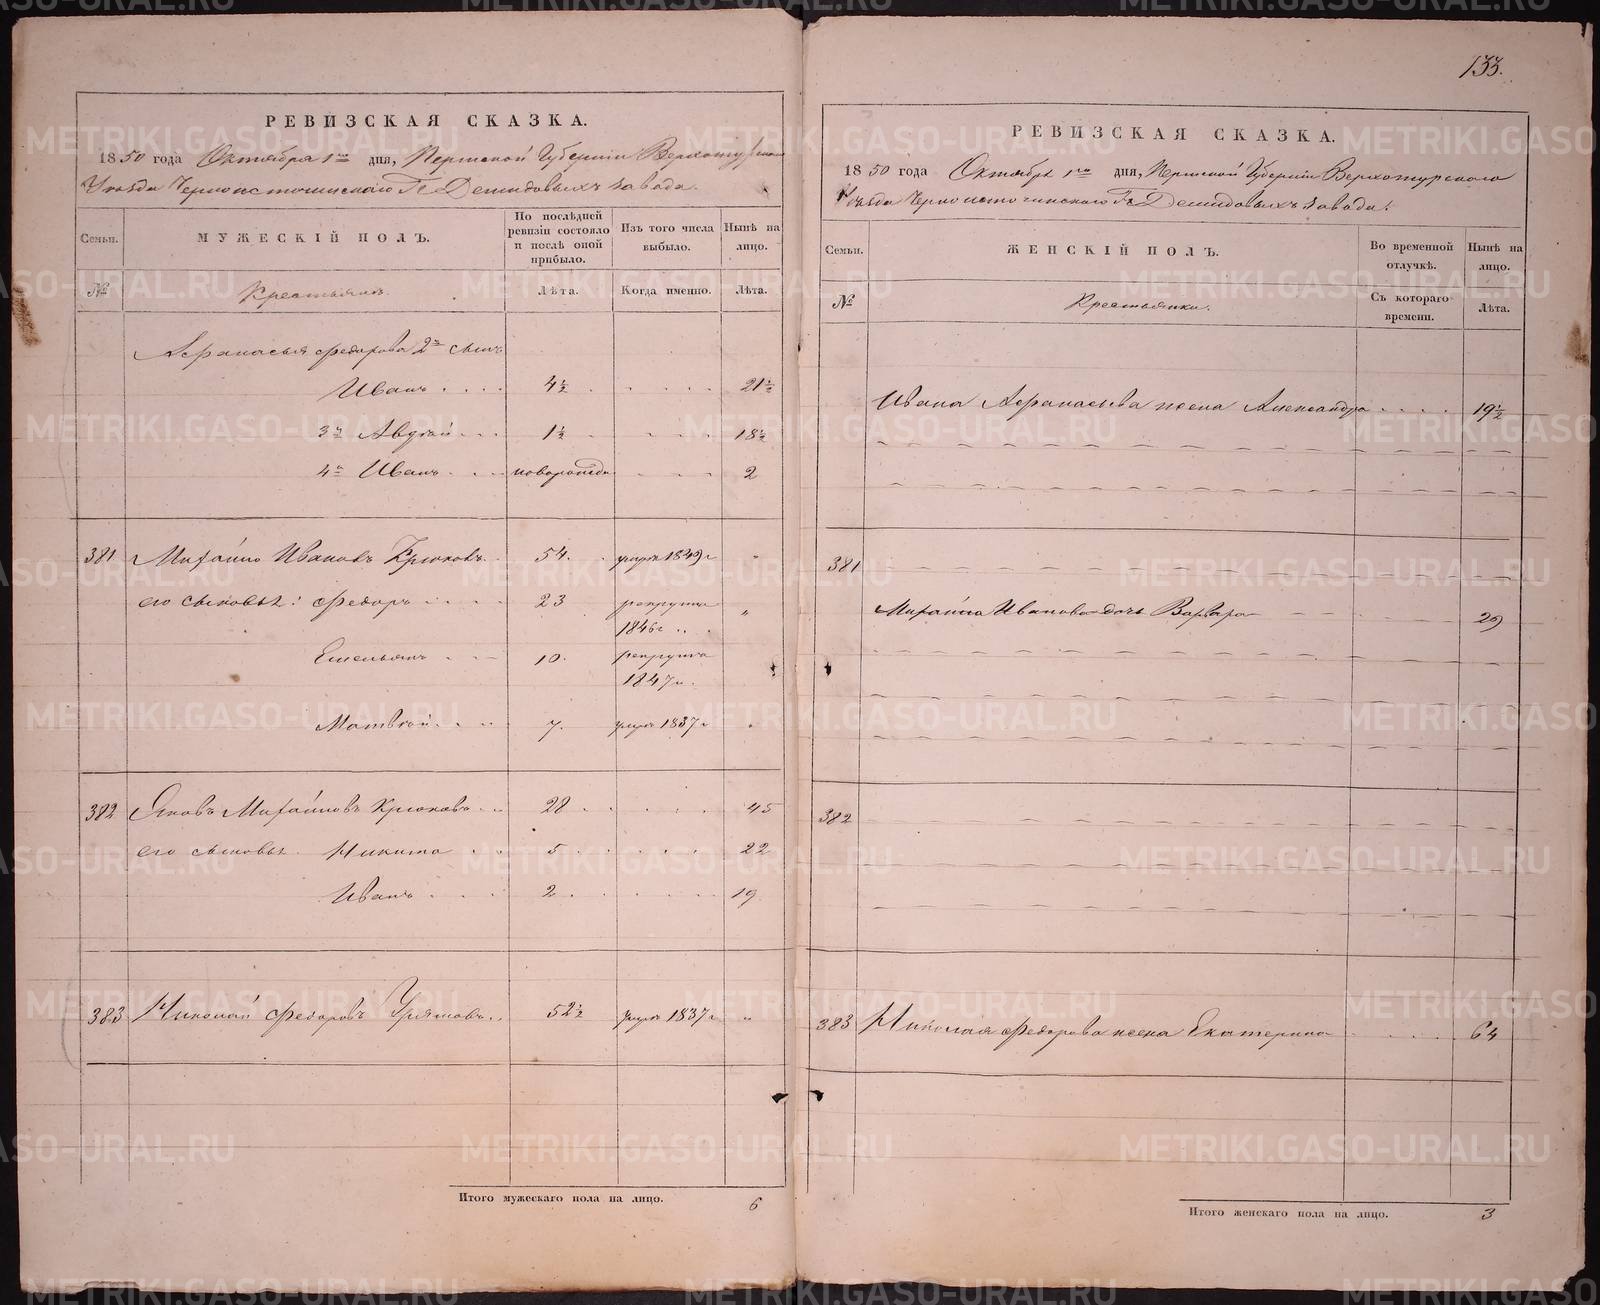 133.
РЕВИЗСКАЯ СКАЗКА.
1850 года Октября 1го дня, Пермской Губернии Верхотурскаго
Уезда Черноисточинскаго Гг Демидовыхъ завода.
Семьи. МУЖЕСКІЙ ПОЛЪ. По послѣдней ревизіи состояло и послѣ оной прибыло. Изъ того числа выбыло. Нынѣ на лицо.
№ Крестьяне. Лѣта. Когда именно. Лѣта.
Афанасья Федорова 2й сынъ
Иванъ 4½ 21½
3й Авдѣй 1½ 18½
4й Иванъ новорожде 2
381 Михайло Ивановъ Крюковъ 54. умре 1849г "
его сыновья: Федоръ 23 рекрута "
1846г
Емельянъ 10. рекрута
1847г.
Матвѣй 7. умре 1837г "
382 Яковъ Михайловъ Крюковъ 28 45
его сыновья Никита 5 22
Иванъ 2 19
383 Николай Федоровъ 52½ умре 1837г "
Итого мужескаго пола на лицо. 6
РЕВИЗСКАЯ СКАЗКА.
1850 года Октября 1го дня, Пермской Губернии Верхотурскаго
Уезда Черноисточинскаго Гг Демидовыхъ завода.
Семьи. ЖЕНСКІЙ ПОЛЪ. Во временной отлучкѣ. Нынѣ на лицо.
№ Крестьянки. Съ котораго времени. Лѣта.
Ивана Афанасьева жена Александра 19½
381
Михайла Иванова дочь Варвара 29
382
383 Николая Федорова жена Екатерина 64
Итого женскаго пола на лицо. 3
METRIKI.GASO-URAL.RU